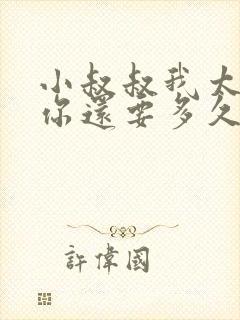 小叔叔我大
你還要多久
許偉國